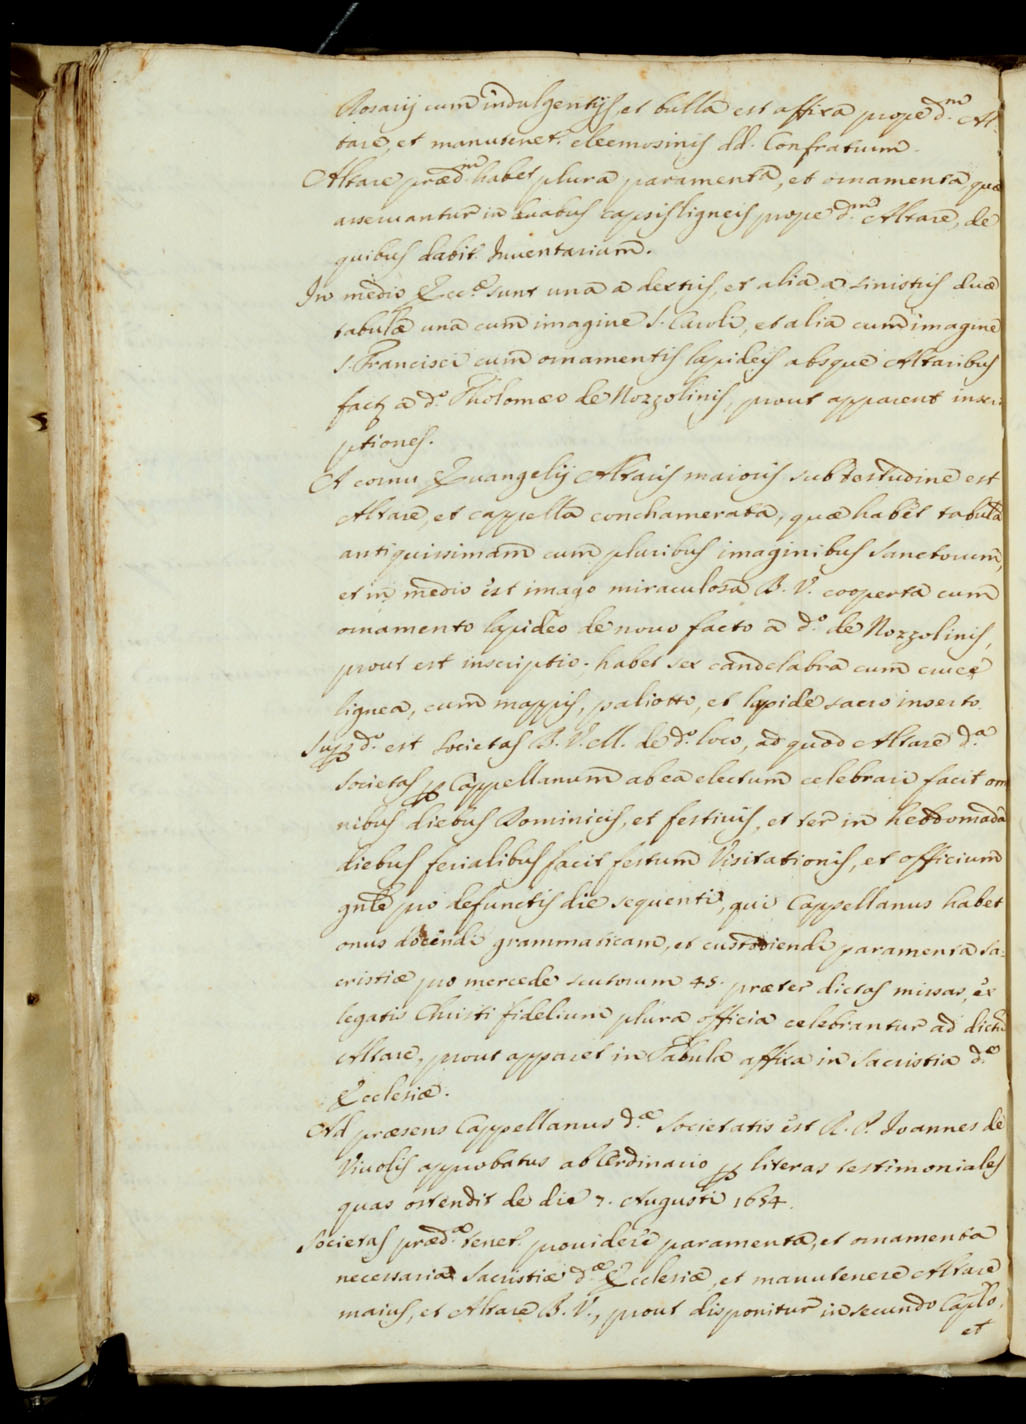 Rosarij cum indulgentijs, et bulla est affixa prope d.m Al-
tare, et manutenet.r eleemosinis dd. Confratrum.
Altare præd.m habet plura paramenta, et ornamenta, quæ
asseruantur in duabus capsis ligneis prope d.m Altare, de
quibus dabit.r Inuentarium.
In medio Eccæ sunt una a dextris, et alia a sinistris duæ
tabulæ una cum imagine S. Caroli, et alia cum imagine
S. Francisci cum ornamentis lapideis absque Altaribus
factæ a d.o Ptholomæo de Nozzolinis, prout apparent inscri
ptiones.
A cornu Euangelij Altaris maioris sub testudine est
Altare, et cappella conchamerata, quæ habet tabulã
antiquissimam cum pluribus imaginibus Sanctorum,
et in medio est imago miraculosa B. V. cooperta cum
ornamento lapideo de nouo facto a d.o de Nozzolinis,
prout est inscriptio. habet sex candelabra cum cruce
lignea, cum mappis, paliotto, et lapide sacro inserto.
Sup d.o est Societas B. V. M. de d.o loco, ad quod Altare d.a
Societas p Cappellanum ab ea electum celebrari facit om
nibus diebus Dominicis, et festiuis, et ter in hebdomada
diebus ferialibus facit festum Visitationis, et officium
gnle pro defunctis die sequenti, qui Cappellanus habet
onus docendi grammaticam, et custodiendi paramenta Sa-
cristiæ pro mercede scutorum 45. præter dictas missas, ex
legatis Christi fidelium plura officia celebrantur ad dictũ
Altare, prout apparet in Tabula affixa in Sacristia d.æ
Ecclesiæ.
Ad præsens Cappellanus d.æ Societatis est R. P. Joannes de
Viuolis approbatus ab Ordinario p literas testimoniales
quas ostendit de die 7. Augusti 1654.
Societas præd.a tenet.r prouidere paramenta, et ornamenta
necessaria Sacristiæ d.æ Ecclesiæ, et manutenere Altare
maius, et Altare B. V., prout disponitur in secundo Caplo,
et